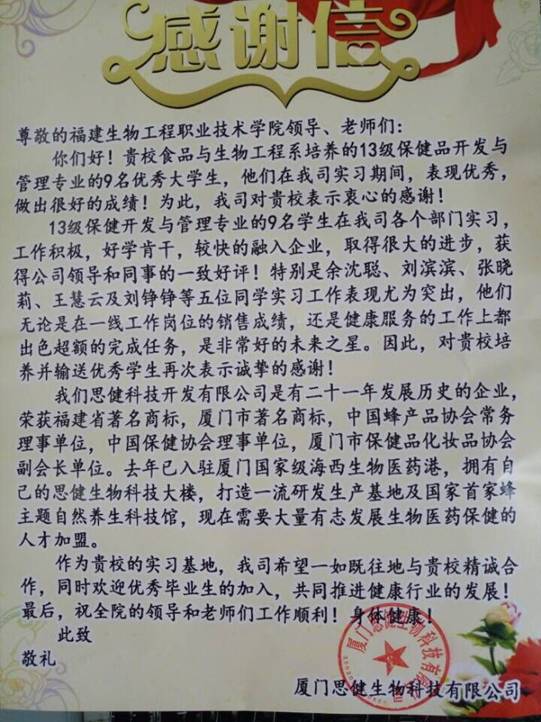 感谢信
尊敬的福建生物工程职业技术学院领导、老师们：
你们好！贵校食品与生物工程系培养的13级保健品开发与
管理专业的9名优秀大学生，他们在我司实习期间，表现优秀，
做出很好的成绩！为此，我司对贵校表示衷心的感谢！
13级保健开发与管理专业的9名学生在我司各个部门实习，
工作积极，好学肯干，较快的融入企业，取得很大的进步，获
得公司领导和同事的一致好评！特别是余沈聪、刘滨滨、张晓
莉、王慧云及刘铮铮等五位同学实习工作表现尤为突出，他们
无论是在一线工作岗位的销售成绩，还是健康服务的工作上都
出色超额的完成任务，是非常好的未来之星。因此，对贵校培
养并输送优秀学生再次表示诚挚的感谢！
我们思健科技开发有限公司是有二十一年发展历史的企业，
荣获福建省著名商标，厦门市著名商标，中国蜂产品协会常务
理事单位，中国保健协会理事单位，厦门市保健品化妆品协会
副会长单位。去年已入驻厦门国家级海西生物医药港，拥有自
己的思健生物科技大楼，打造一流研发生产基地及国家首家蜂
主题自然养生科技馆，现在需要大量有志发展生物医药保健的
人才加盟。
作为贵校的实习基地，我司希望一如既往地与贵校精诚合
作，同时欢迎优秀毕业生的加入，共同推进健康行业的发展！
最后，祝全院的领导和老师们工作顺利！身体健康！
此致
敬礼
厦门思健生物科技有限公司
厦门思健生物科技有限公司